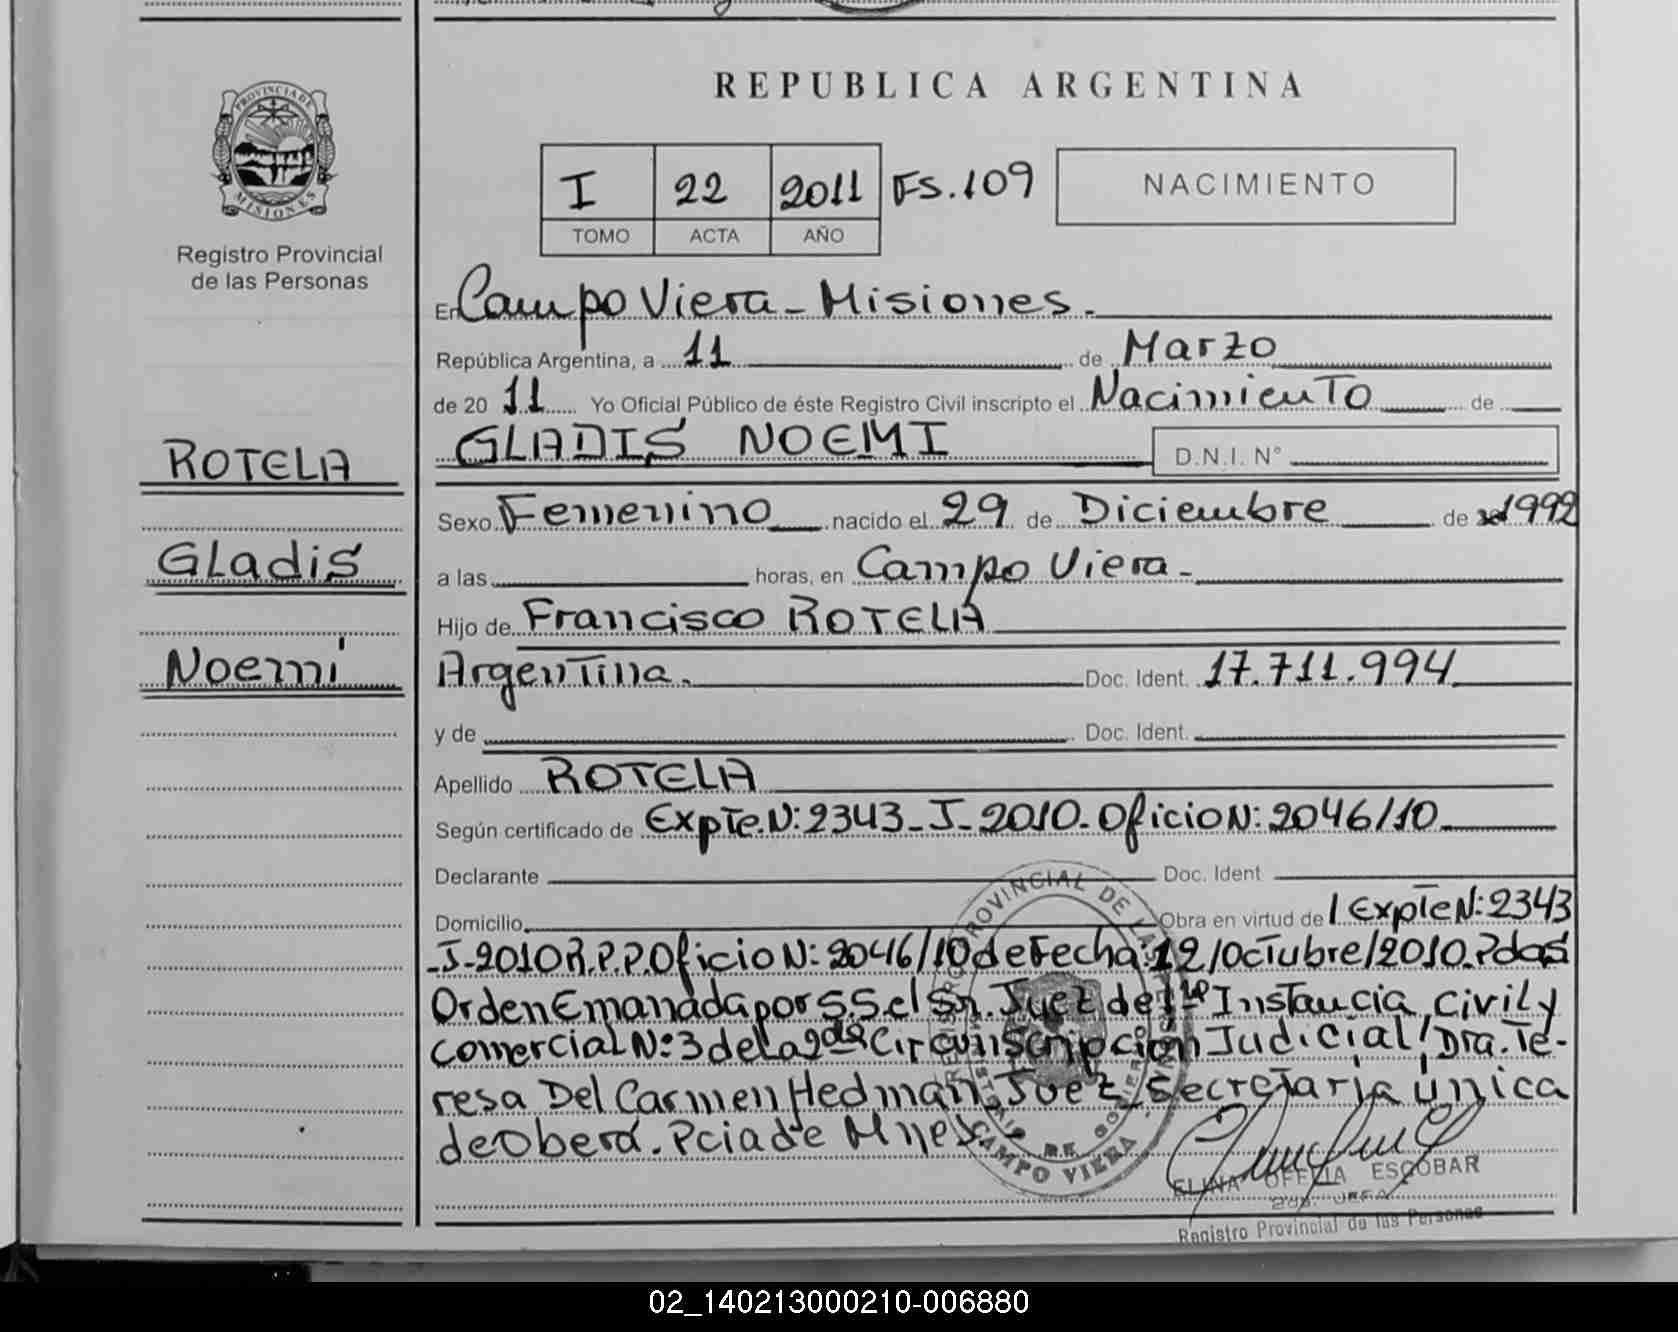 REPUBLICA ARGENTINA
PROVINCIA DE
MISIONES
Registro Provincial
de las Personas
I 22 2011 FS.109
TOMO ACTA AÑO
NACIMIENTO
En Campo Viera - Misiones.
República Argentina, a 11 de Marzo
de 20 11 Yo Oficial Público de éste Registro Civil inscripto el Nacimiento de
GLADIS NOEMI D.N.I. N°
ROTELA
Sexo Femenino nacido el 29 de Diciembre de 1992
Gladis
a las horas, en Campo Viera -
Hijo de Francisco ROTELA
Noemí
Argentina. Doc. Ident. 17.711.994
y de Doc. Ident.
Apellido ROTELA
Según certificado de Expte.N:2343-J-2010-Oficio N:2046/10
Declarante Doc. Ident
Domicilio Obra en virtud de / Expte N:2343
-J-2010 R.P.P.Oficio N:2046/10 de Fecha:12/Octubre/2010.
Orden Emanada por S.S.el Sr. Juez de Instancia Civil y
comercial Nº3 de La 2da Circunscripcion Judicial/Dra.Te-
resa Del Carmen Hedman, Juez, Secretaria única
de Oberá. Pcia de Mnes
REGISTRO PROVINCIAL DE LAS
CAMPO VIERA
ELINA OFELIA ESCOBAR
Registro Provincial de las Personas
02_140213000210-006880